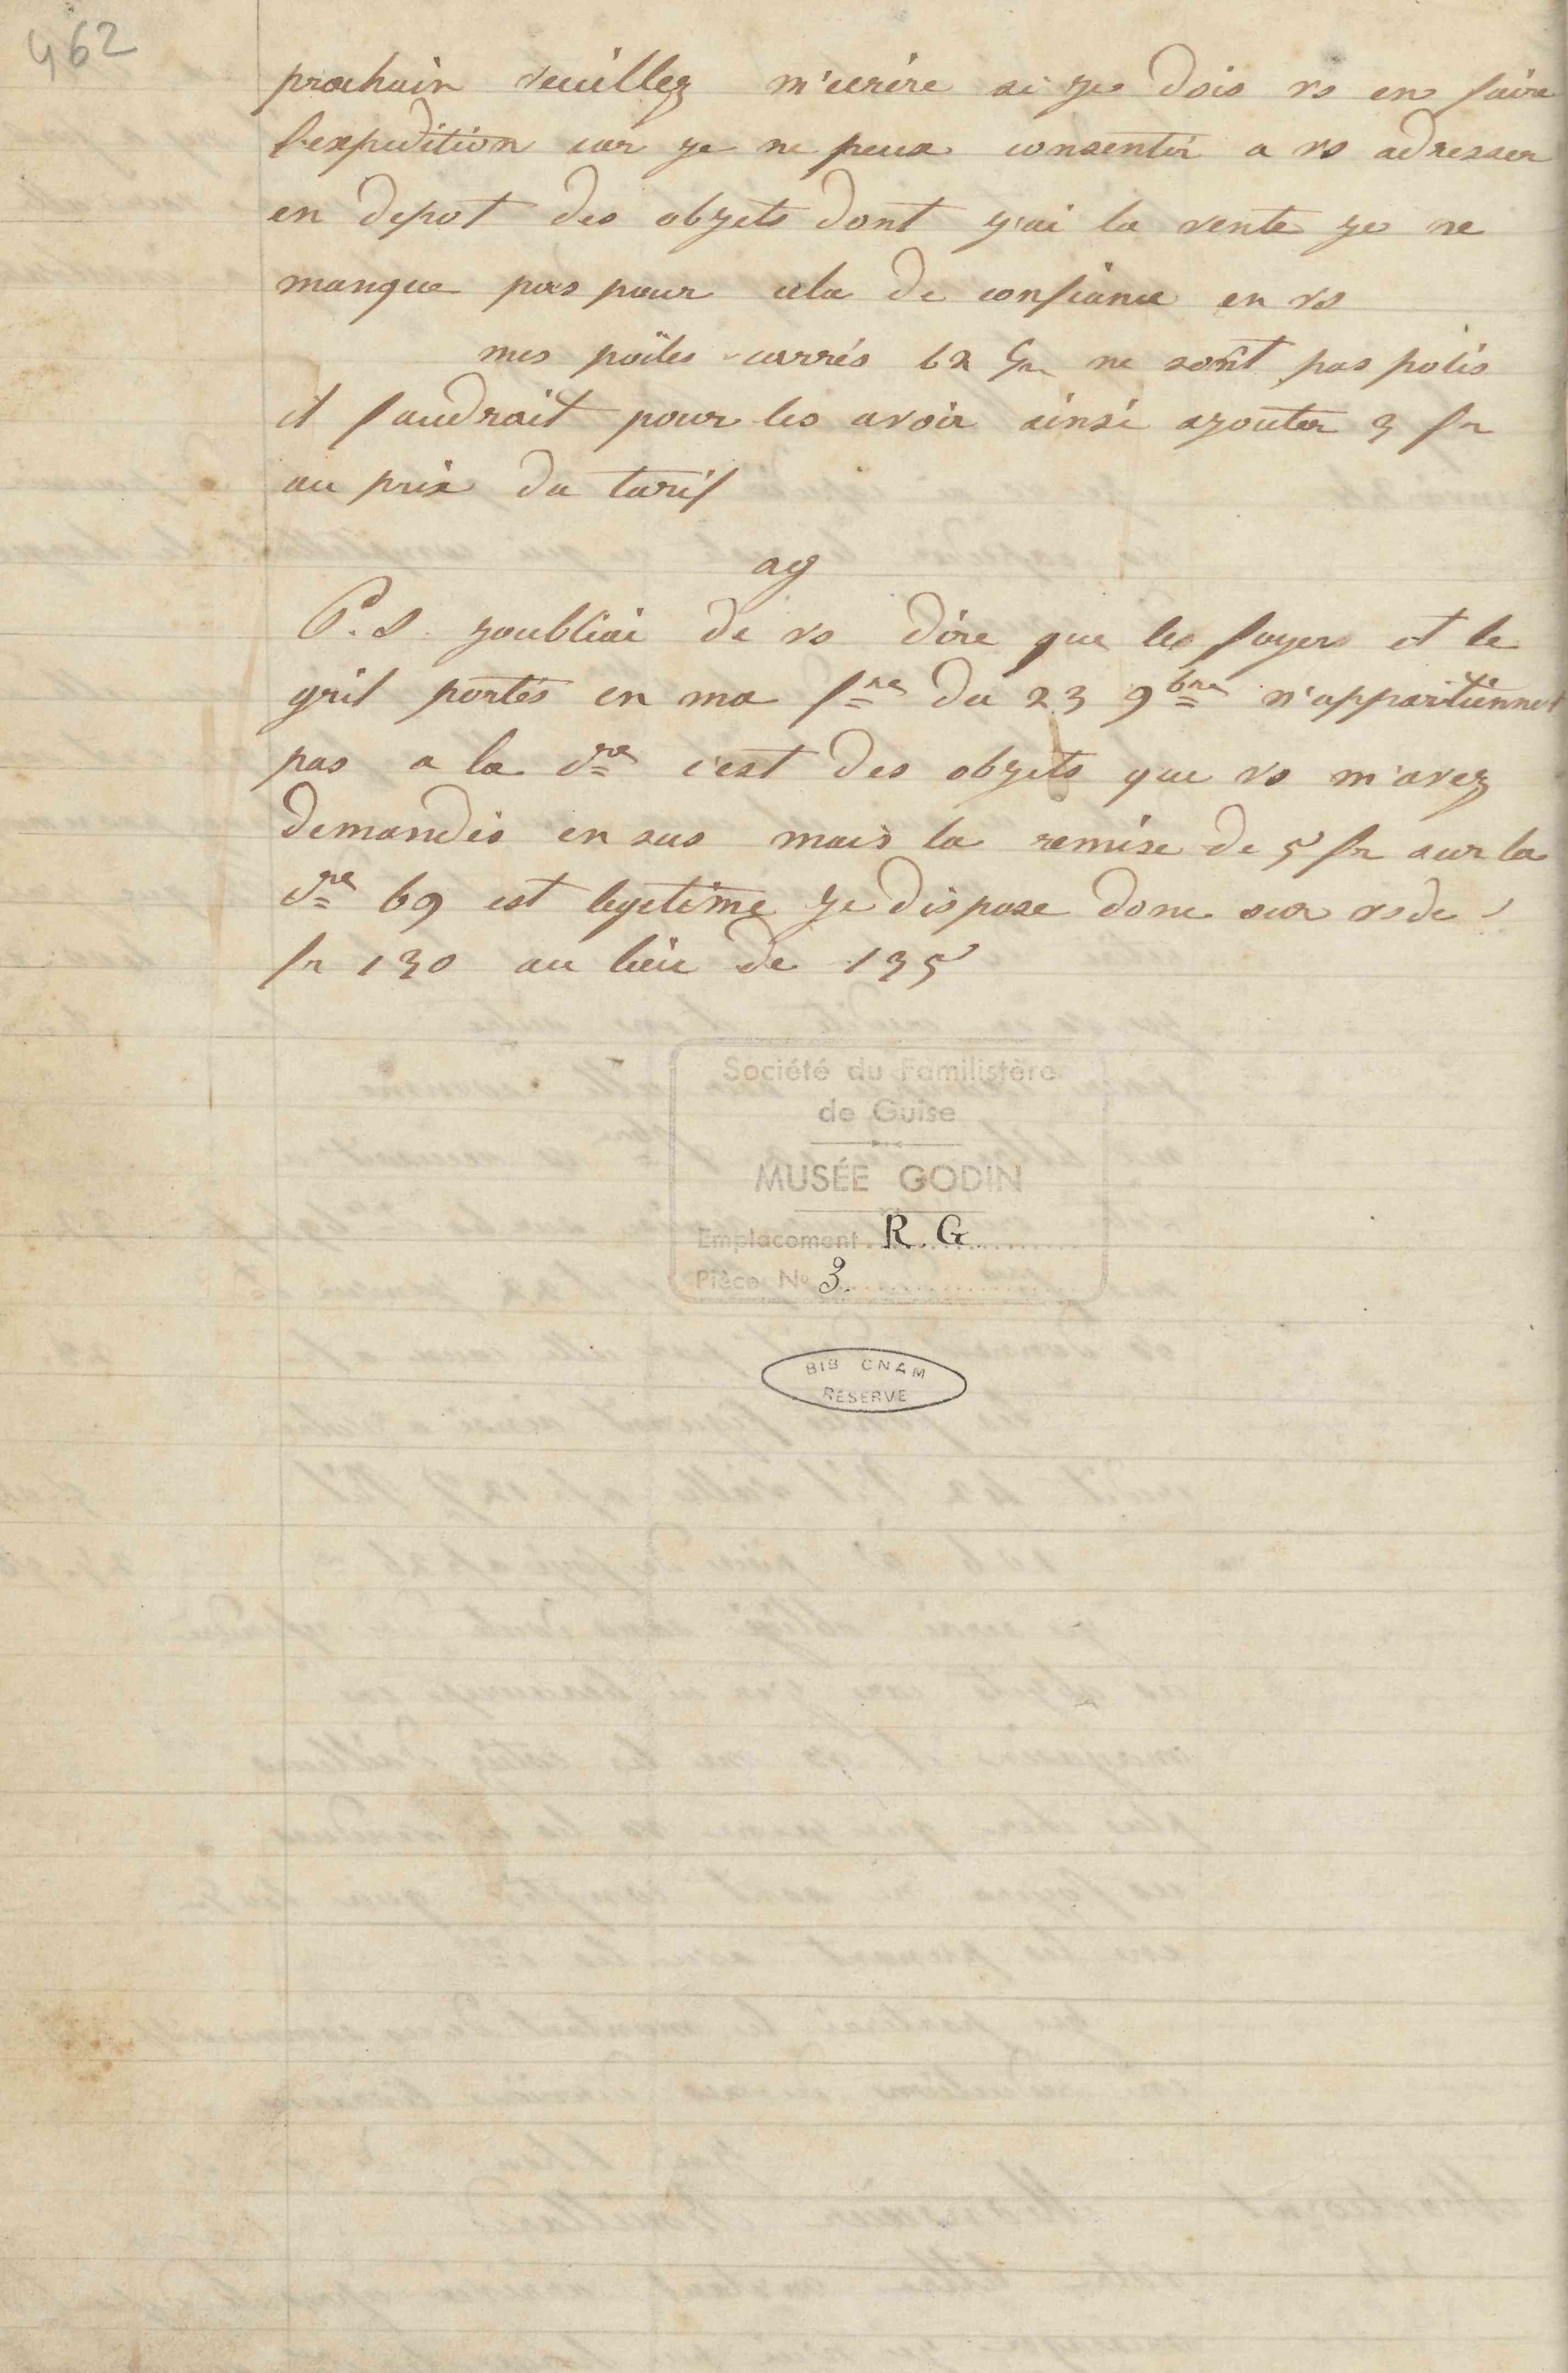 462
prochain veuillez m'ecrire si je dois vs en faire
l'expedition car je ne peux consentir a vs adresser
en depot des objets dont j'ai la vente je ne
manque pas pour cela de confiance en vs
mes poëles carrés 62 ne sont pas polis
il faudrait pour les avoir ainsi ajouter 3 fr
au prix du tarif
ag
P.S. joubliai de vs dire que les foyers et le
gril portés en ma fre du 23 9bre n'appartiennet
pas a la cre c'est des objets que vs m'avez
demandés en sus mais la remise de 5 fr sur la
cre 69 est legetime je dispose donc sur vs de
fr 130 au lieu de 135
Société du Familistère
de Guise
MUSÉE GODIN
Emplacement R. G.
Pièce No 3.
BIB CNAM
RESERVE